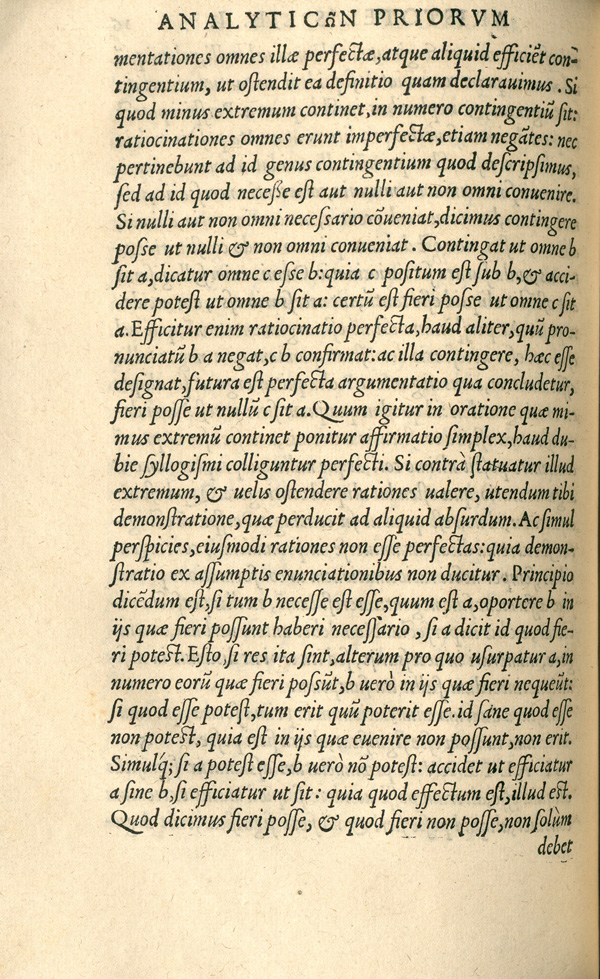 ANALYTICω̃N PRIORVM
mentationes omnes illæ perfectæ,atque aliquid efficiẽt con-
tingentium, ut ostendit ea definitio quam declarauimus . Si
quod minus extremum continet,in numero contingentiũ sit:
ratiocinationes omnes erunt imperfectæ,etiam negãtes: nec
pertinebunt ad id genus contingentium quod descripsimus,
sed ad id quod necesse est aut nulli aut non omni conuenire.
Si nulli aut non omni necessario cõueniat,dicimus contingere
posse ut nulli & non omni conueniat . Contingat ut omne b
sit a,dicatur omne c esse b:quia c positum est sub b,& acci-
dere potest ut omne b sit a: certũ est fieri posse ut omne c sit
a.Efficitur enim ratiocinatio perfecta,haud aliter,quũ pro-
nunciatũ b a negat,c b confirmat:ac illa contingere, hæc esse
designat,futura est perfecta argumentatio qua concludetur,
fieri posse ut nullũ c sit a.Quum igitur in oratione quæ mi-
mus extremũ continet ponitur affirmatio simplex,haud du-
bie syllogismi colliguntur perfecti. Si contrà statuatur illud
extremum, & uelis ostendere rationes ualere, utendum tibi
demonstratione,quæ perducit ad aliquid absurdum.Ac simul
perspicies,eiusmodi rationes non esse perfectas:quia demon-
stratio ex assumptis enunciationibus non ducitur . Principio
dicẽdum est,si tum b necesse est esse,quum est a,oportere b in
ijs quæ fieri possunt haberi necessario , si a dicit id quod fie-
ri potest.Esto,si res ita sint,alterum pro quo usurpatur a,in
numero eorũ quæ fieri possũt,b uerò in ijs quæ fieri nequeũt:
si quod esse potest,tum erit quũ poterit esse.id sãne quod esse
non potest, quia est in ijs quæ euenire non possunt,non erit.
Simulq́; si a potest esse,b uerò nõ potest: accidet ut efficiatur
a sine b,si efficiatur ut sit : quia quod effectum est,illud est.
Quod dicimus fieri posse, & quod fieri non posse,non solùm
debet